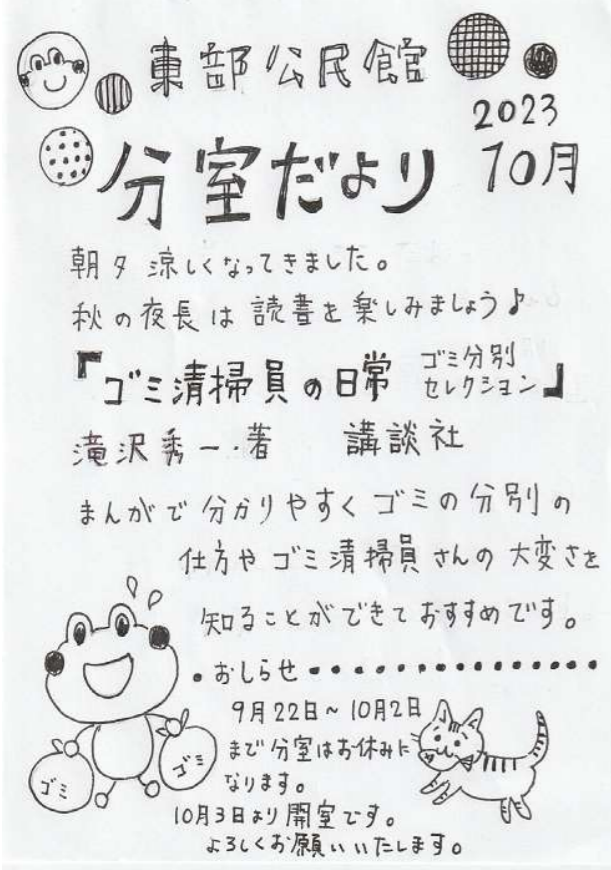 東部公民館
2023
分室だより 10月
朝夕涼しくなってきました。
秋の夜長は読書を楽しみましょう♪
『ゴミ清掃員の日常 ゴミ分別
セレクション』
滝沢秀一・著 講談社
まんがで分かりやすくゴミの分別の
仕方やゴミ清掃員さんの大変さを
知ることができておすすめです。
・おしらせ・・・・・・・・・・・・・・・・
9月22日～10月2日
まで分室はお休みに
なります。
10月3日より開室です。
よろしくお願いいたします。
ゴミ
ゴミ